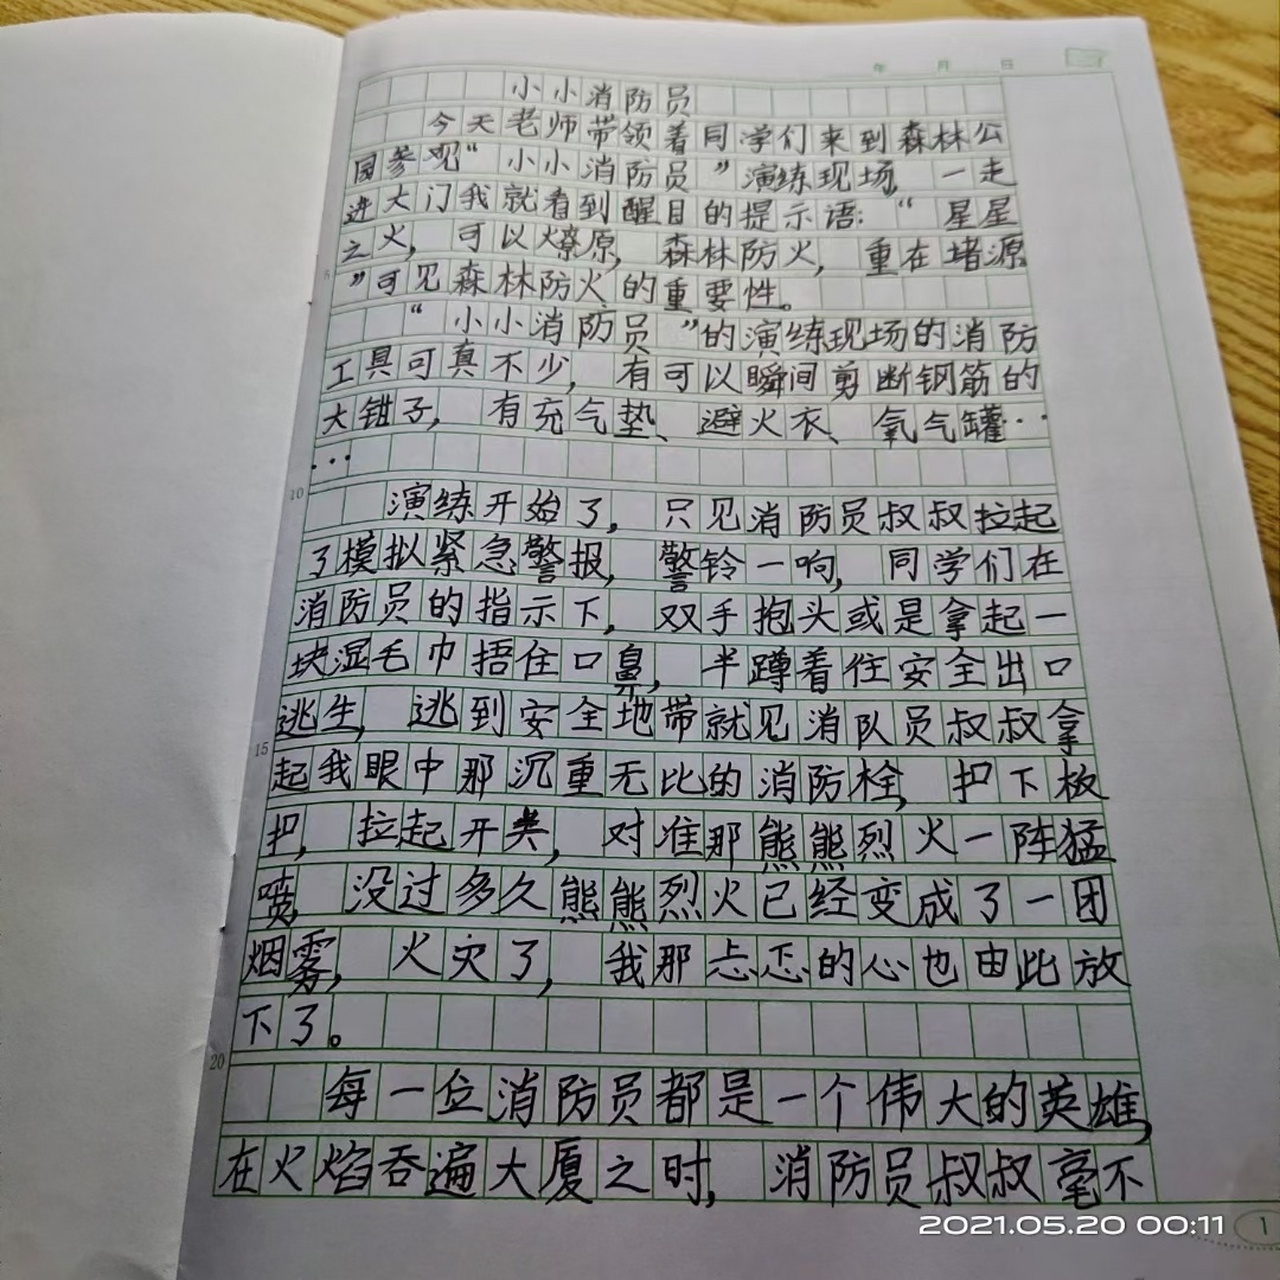 年 月 日
小小消防员
今天老师带领着同学们来到森林公
园参观“小小消防员”演练现场,一走
进大门我就看到醒目的提示语:“星星
之火,可以燎原,森林防火,重在堵源
”可见森林防火的重要性。
“小小消防员”的演练现场的消防
工具可真不少,有可以瞬间剪断钢筋的
大钳子,有充气垫、避火衣、氧气罐··
···
演练开始了,只见消防员叔叔拉起
了模拟紧急警报,警铃一响,同学们在
消防员的指示下,双手抱头或是拿起一
块湿毛巾捂住口鼻,半蹲着住安全出口
逃生,逃到安全地带就见消队员叔叔拿
起我眼中那沉重无比的消防栓,扣下板
把,拉起开关,对准那熊熊烈火一阵猛
喷,没过多久熊熊烈火已经变成了一团
烟雾,火灾了,我那忐忑的心也由此放
下了。
每一位消防员都是一个伟大的英雄,
在火焰吞遍大厦之时,消防员叔叔毫不
5
10
15
20
2021.05.20 00:11
1